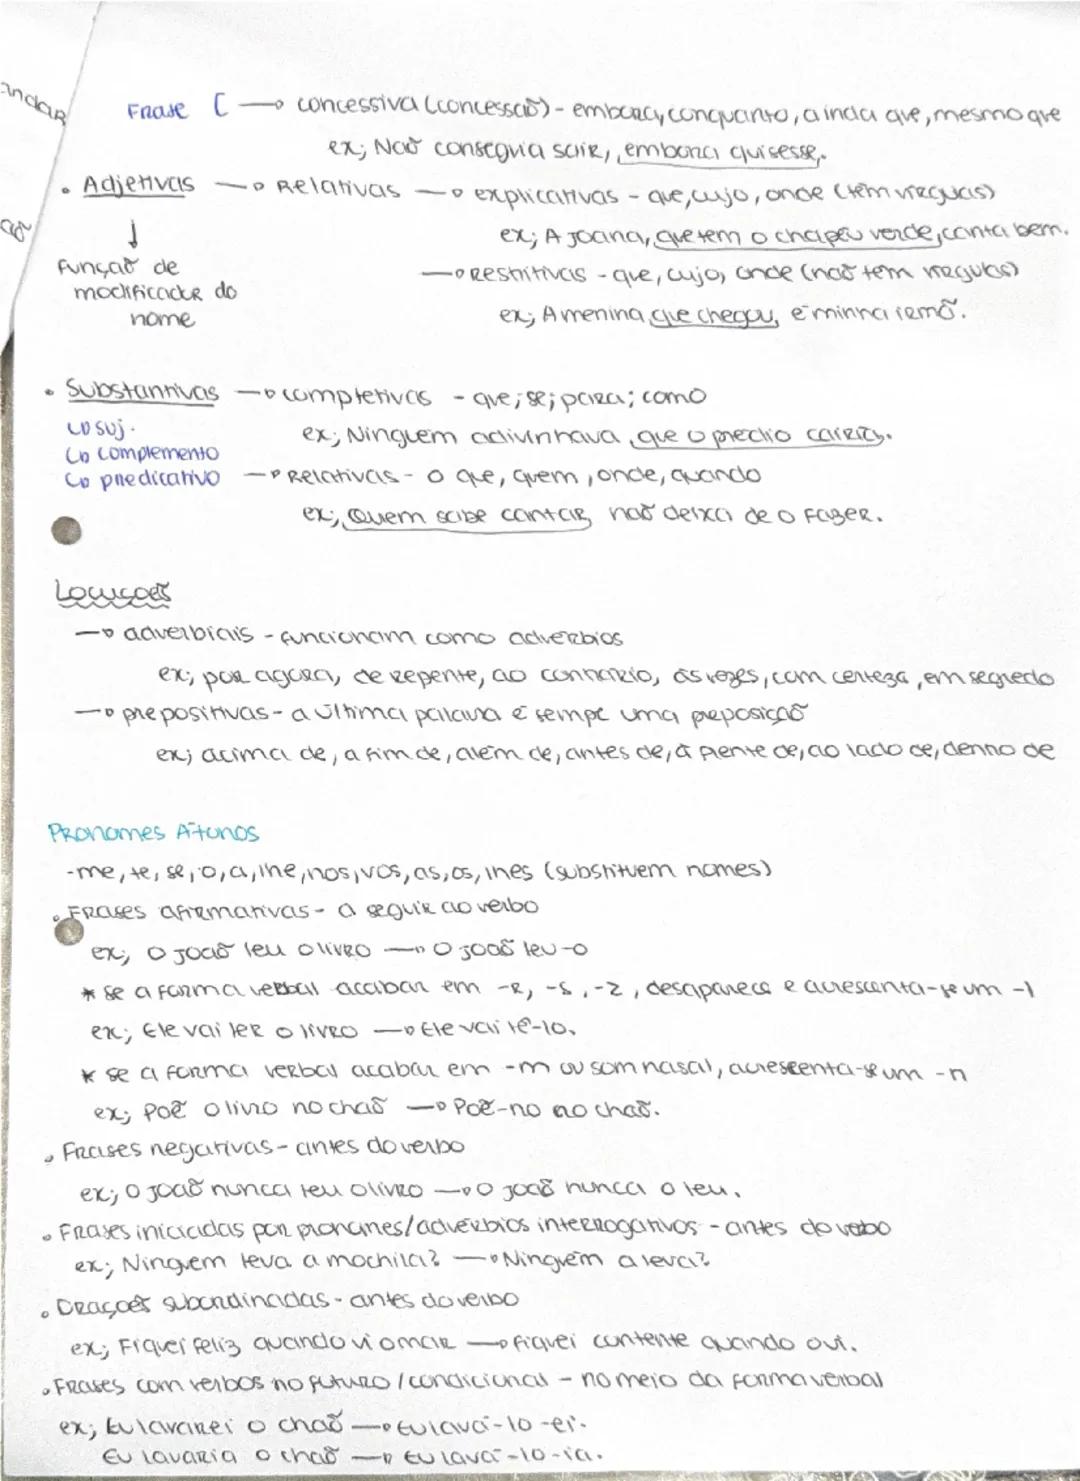 andar
Frase [ → concessiva (concessão) - embora, conquanto, ainda que, mesmo que
ex; Não conseguia sair, embora quisesse.
• Adjetivas → Relativas → explicativas - que, cujo, onde (têm vírgulas)
ex; A Joana, que tem o chapéu verde, canta bem.
↓
função de modificador do nome
→ Restritivas - que, cujo, onde (não tem vírgulas)
ex; A menina que chegou, é minha irmã.
• Substantivas → completivas - que; se; para; como
↳ suj.
ex; Ninguém adivinhava que o prédio cairia.
↳ complemento
↳ predicativo → Relativas - o que, quem, onde, quando
ex; Quem sabe cantar não deixa de o fazer.
Locuções
→ adverbiais - funcionam como advérbios
ex; por agora, de repente, ao contrário, às vezes, com certeza, em segredo
→ prepositivas - a última palavra é sempre uma preposição
ex; acima de, a fim de, além de, antes de, à frente de, ao lado de, dentro de
Pronomes Átonos
- me, te, se, o, a, lhe, nos, vos, as, os, lhes (substituem nomes)
• Frases afirmativas - a seguir ao verbo
ex; O João leu o livro → O João leu-o
* se a forma verbal acabar em -r, -s, -z, desaparece e acrescenta-se um -l
ex; Ele vai ler o livro → Ele vai lê-lo.
* se a forma verbal acabar em -m ou som nasal, acrescenta-se um -n
ex; Põe o livro no chão → Põe-no no chão.
• Frases negativas - antes do verbo
ex; O João nunca leu o livro → O João nunca o leu.
• Frases iniciadas por pronomes/advérbios interrogativos - antes do verbo
ex; Ninguém leva a mochila? → Ninguém a leva?
• Orações subordinadas - antes do verbo
ex; Fiquei feliz quando vi o mar → fiquei contente quando o vi.
• Frases com verbos no futuro / condicional - no meio da forma verbal
ex; Eu lavarei o chão → Eu lavá-lo-ei.
Eu lavaria o chão → Eu lavá-lo-ia.